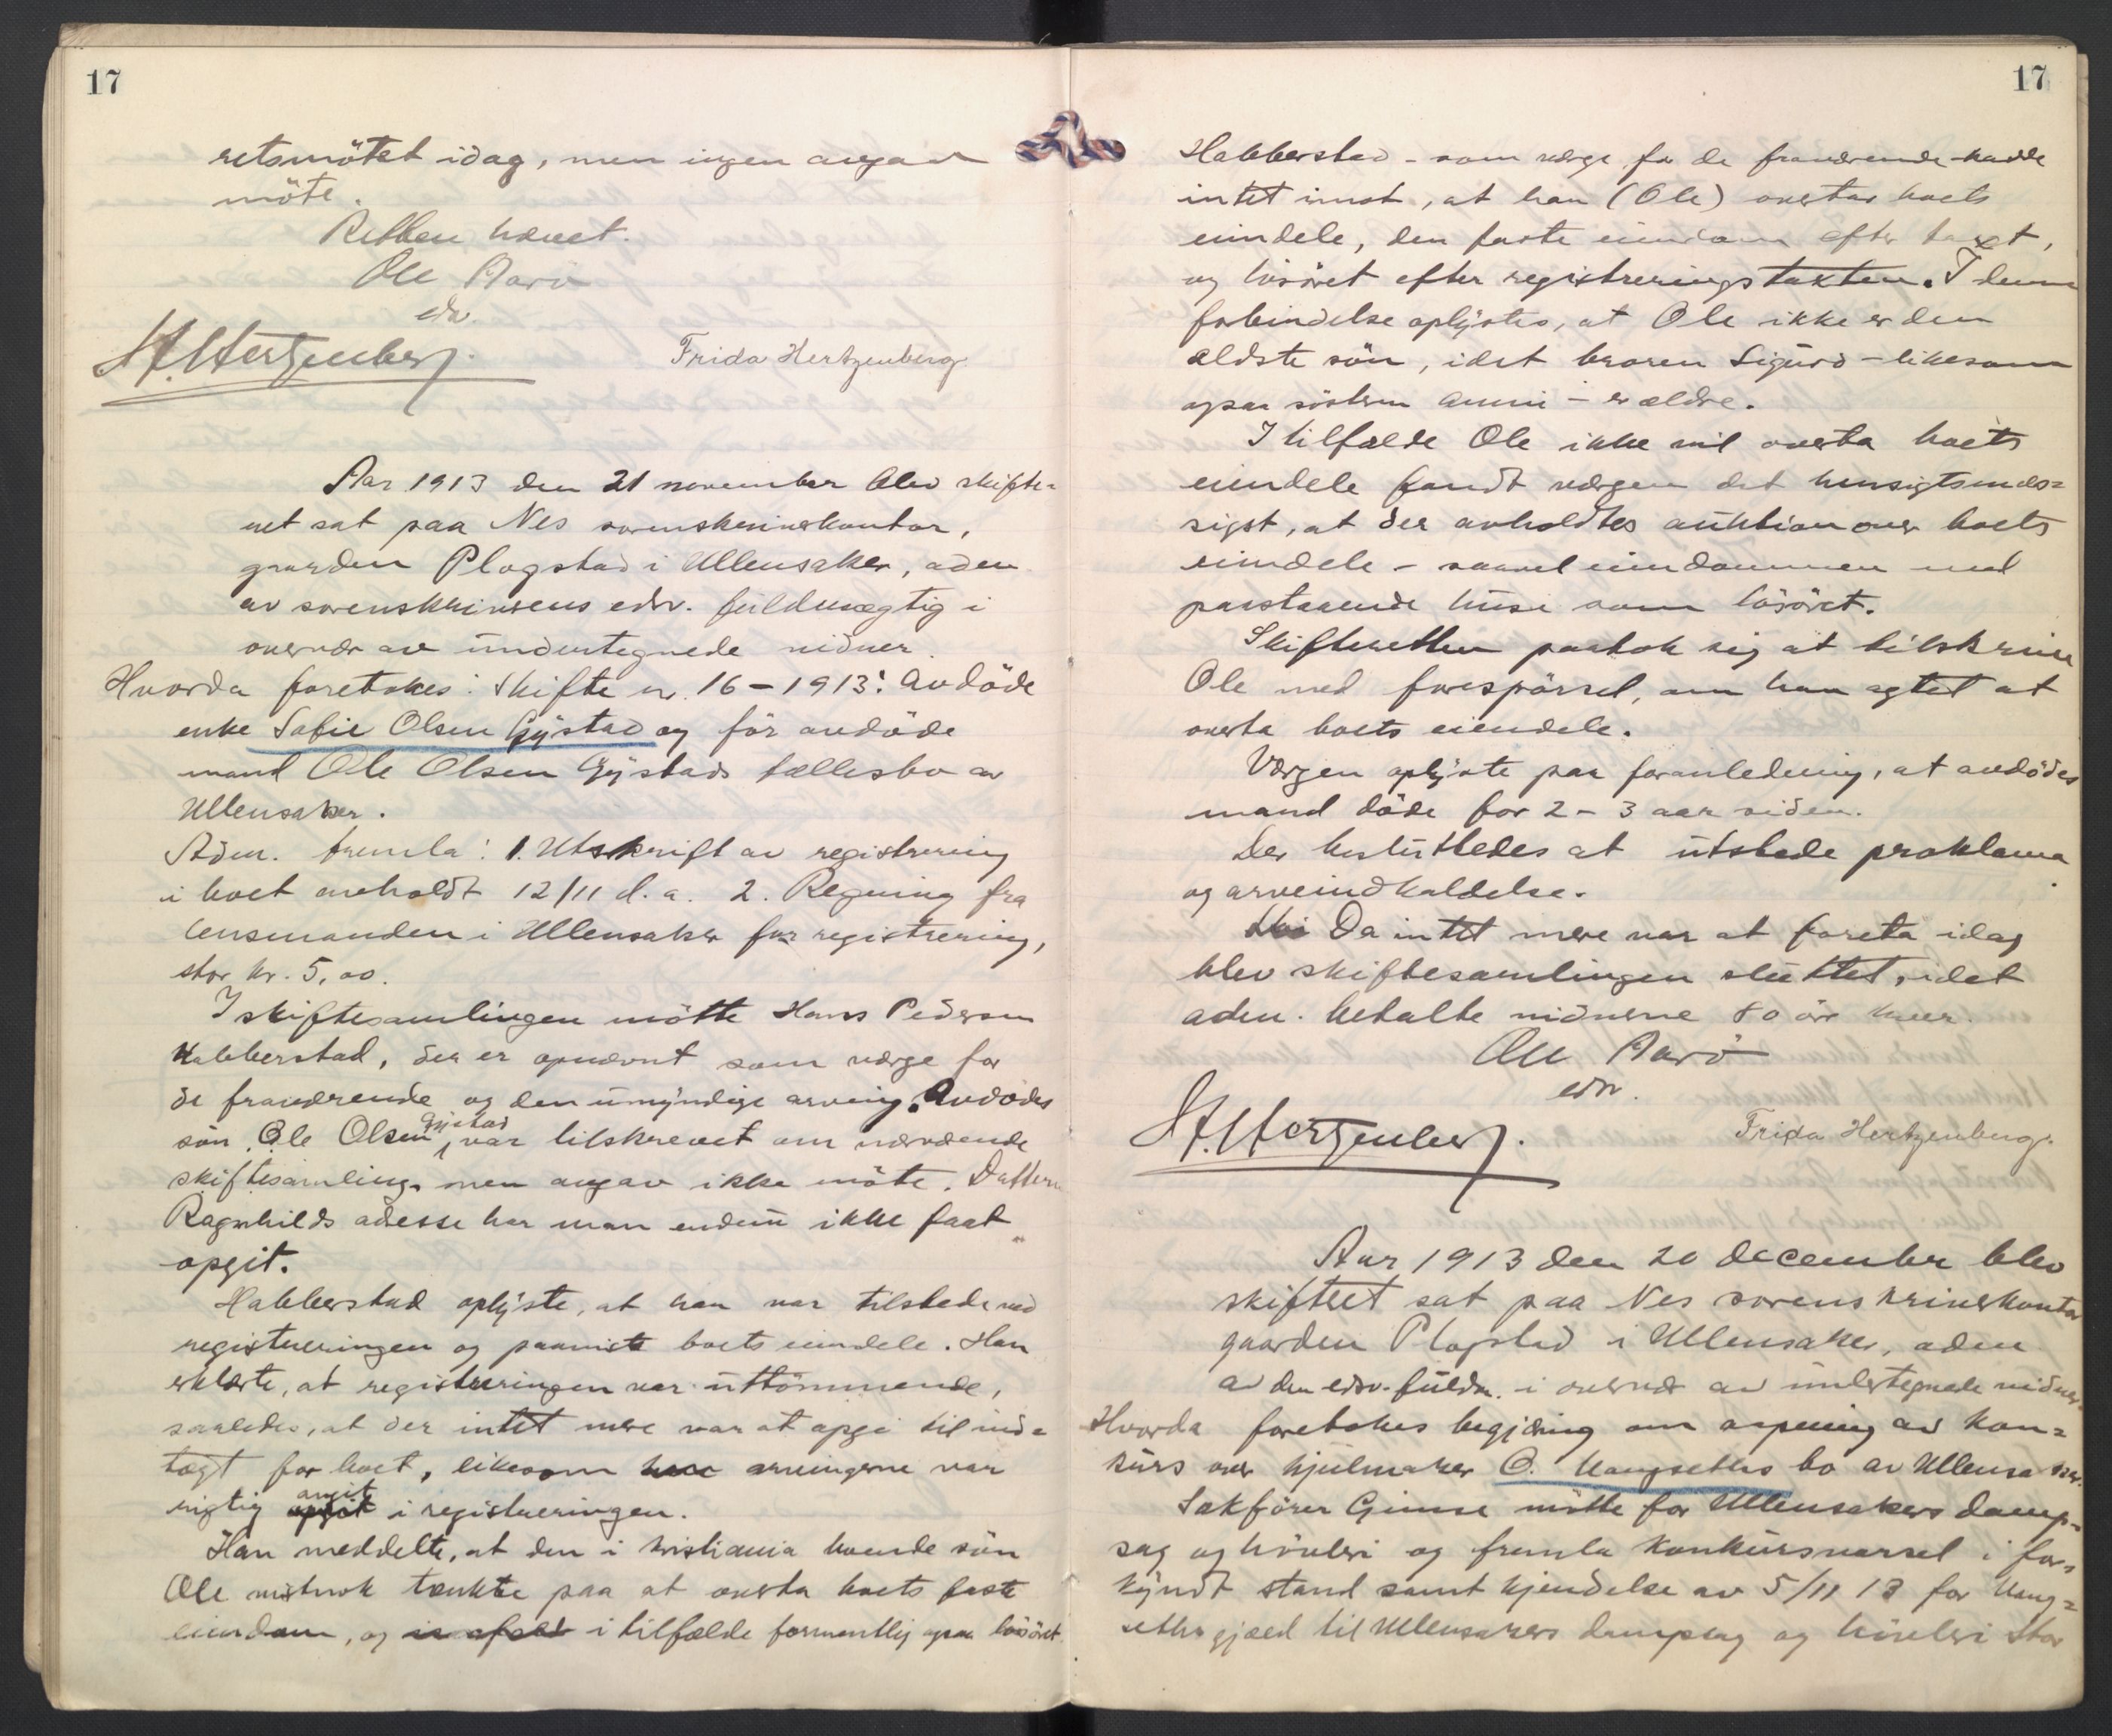 17
retsmötet idag, men ingen avgav
möte.
Retten hævet.
Ole Aarö
edv.
H. Hertzenberg. Frida Hertzenberg.
Aar 1913 den 21 november blev skifte-
ret sat paa Nes sorenskriverkontor,
gaarden Plogstad i Ullensaker, adm
av sorenskriverens edsv. fuldmægtig i
overvær av undertegnede vidner.
Hvorda foretokes: Skifte nr. 16-1913: Avdöde
enke Sofie Olsen Gystad og för avdöde
mand Ole Olsen Gystads fællesbo av
Ullensaker.
Adm. fremla: 1. Utskrift av registrering
i boet avholdt 12/11 d.a. 2. Regning fra
lensmanden i Ullensaker for registrering,
stor kr. 5,00.
I skiftesamlingen mötte Hans Pedersen
Habberstad, der er opnævnt som værge for
de fraværende og den umyndige arving. Avdödes
sön Ole Olsen Gystad, var tilskrevet om nærværende
skiftesamling, men avgav ikke möte. Datteren
Ragnhilds adesse har man endnu ikke faat
opgit.
Habberstad oplyste, at han var tilstede ved
registreringen og paaviste boets eiendele. Han
erklærte, at registreringen var uttömmende,
saaledes, at der intet mere var at opgi til ind-
tægt for boet, likesom arvingerne var
rigtig angit opgit i registreringen.
Han meddelte, at den i Kristiania boende sön
Ole nok tænkte paa at overta boets faste
eiendom, og i tilfælde formentlig ogsaa lösöret.
17
Habberstad - som værge for de fraværende - hadde
intet imot, at han (Ole) overtar boets
eiendele, den faste eiendom efter taxt,
og lösöret efter registreringstakten. I denne
forbindelse oplystes, at Ole ikke er den
ældste sön, idet broren Sigurd - likesom
ogsaa söstren Anni - er ældre.
I tilfælde Ole ikke vil overta boets
eiendele fandt værgen det hensigtsmæs-
sigst, at der avholdtes auktion over boets
eiendele - saavel eiendommen med
paastaaende huse som lösöret.
Skifteretten paatok sig at tilskrive
Ole med forespörsel, om han agtet at
overta boets eiendele.
Værgen oplyste paa foranledning, at avdödes
mand döde for 2 - 3 aar siden.
Der besluttedes at utstede proklama
og arveindkaldelse.
Da intet mere var at foreta idag
blev skiftesamlingen sluttet, idet
adm. betalte vidnerne 80 öre hver.
Ole Aarö
edv.
H. Hertzenberg. Frida Hertzenberg.
Aar 1913 den 20 december blev
skifteret sat paa Nes sorenskriverkontor
gaarden Plogstad i Ullensaker, adm
av den edsv. fuldm. i overvær av undertegnede vidner.
Hvorda foretokes begjæring om aapning av kon-
kurs over hjulmaker O. Haugseths bo av Ullensaker.
Sakförer Gimse mötte for Ullensakers damp-
sag og hövleri og fremla konkursvarsel i for-
kyndt stand samt kjendelse av 5/11 13 for Haug-
seths gjæld til Ullensakers dampsag og hövleri stor